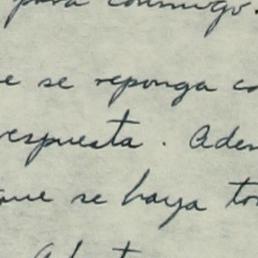 para conmigo.
se reponga
respuesta. Adem
que se haya to